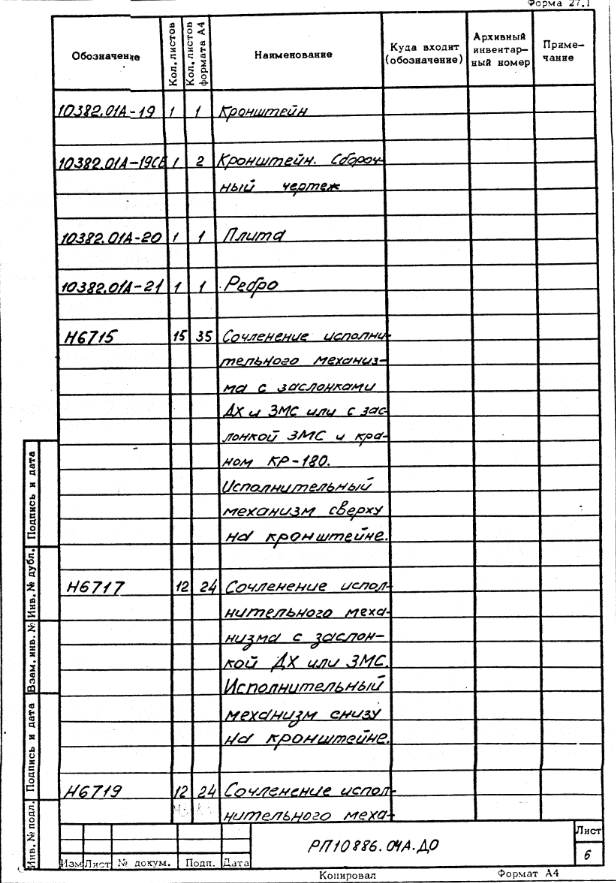 Форма 27.1
Обозначение
Кол. листов
Кол. листов формата А4
Наименование
Куда входит (обозначение)
Архивный инвентарный номер
Примечание
10382.01А-19 1 1 Кронштейн
10382.01А-19СБ 1 2 Кронштейн. Сбороч
ный чертеж
10382.01А-20 1 1 Плита
10382.01А-21 1 1 Ребро
Н6715 15 35 Сочленение исполни-
тельного механиз-
ма с заслонками
ДХ и ЗМС или с зас
лонкой ЗМС и кра-
ном КР-180.
Исполнительный
механизм сверху
на кронштейне.
Н6717 12 24 Сочленение испол-
нительного меха-
низма с заслон-
кой ДХ или ЗМС.
Исполнительный
механизм снизу
на кронштейне.
Н6719 12 24 Сочленение испол-
нительного меха-
Инв. № подл. Подпись и дата Взам. инв. № Инв. № дубл. Подпись и дата
РП10886.04А.ДО
Лист
6
Изм Лист № докум. Подп. Дата
Копировал Формат А4